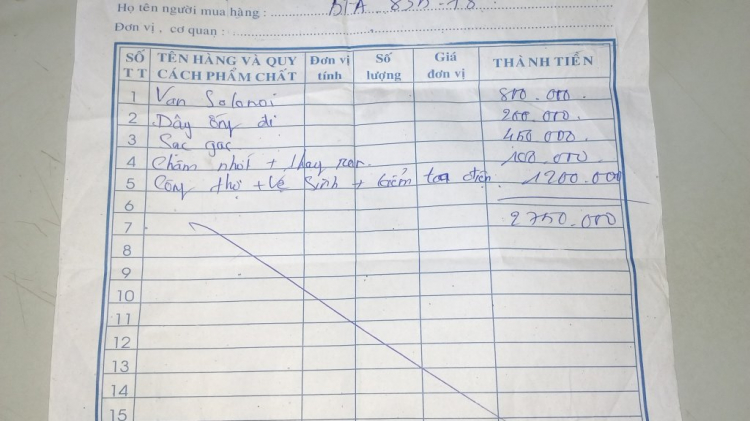 Họ tên người mua hàng :
Đơn vị , cơ quan :
SỐ TT TÊN HÀNG VÀ QUY CÁCH PHẨM CHẤT Đơn vị tính Số lượng Giá đơn vị THÀNH TIỀN
1 Van Solonoi 800.000
2 Dây ống đi 200.000
3 Sạc gas 450.000
4 Châm nhớt + thay ron 100.000
5 Công thợ + vệ sinh + kiểm tra điện 1200.000
6
7 2750.000
8
9
10
11
12
13
14
15